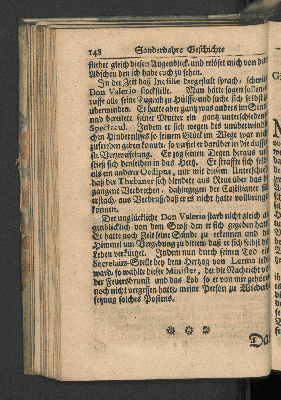 148 Sonderbahre Geschichte
fliehet gleich diesen Augenblick, und erlöset mich von dem
Abscheu den ich habe euch zu sehen.
In der Zeit daß Inesille dergestalt sprach, schwieg
Don Valerio stockstille. Man hätte sagen sollen er
ruffe alle seine Tugend zu Hülffe, und suche sich selbst zu
überwinden. Er hatte aber was ganz anders im Sinn
und bereitete seiner Mutter ein ganz unterschiedenes
Spectacul. Indem er sich wegen des unüberwindli-
chen Hindernisses so seinem Glück im Wege war nicht
zufrieden geben konnte, so verfiel er darüber in die äusser-
ste Verzweifelung. Er zog seinen Degen heraus und
stieß sich denselben in das Hertz. Er straffte sich selbst
als ein anderer Oedipus, mit mit diesem Unterschied
daß der Thebaner sich blendete aus Reue über das be-
gangene Verbrechen, dahingegen der Castilianer sich
erstach, aus Verdruß daß er es nicht hatte vollbringen
können.
Der unglückliche Don Valerio starb nicht gleich au-
genblicklich von dem Stoß den er sich gegeben hatte.
Er hatte noch Zeit seine Sünde zu erkennen und den
Himmel um Vergebung zu bitten, daß er sich selbst das
Leben verkürtzet. Indem nun durch seinen Tod eine
Secretairs-Stelle bey dem Herzog von Lerma ledig
ward, so wählte dieser Minister, der die Nachricht von
der Feuersbrunst und das Lob so er von mir gehöret
noch nicht vergessen hatte, meine Person zu Wieder be-
setzung solches Postens.